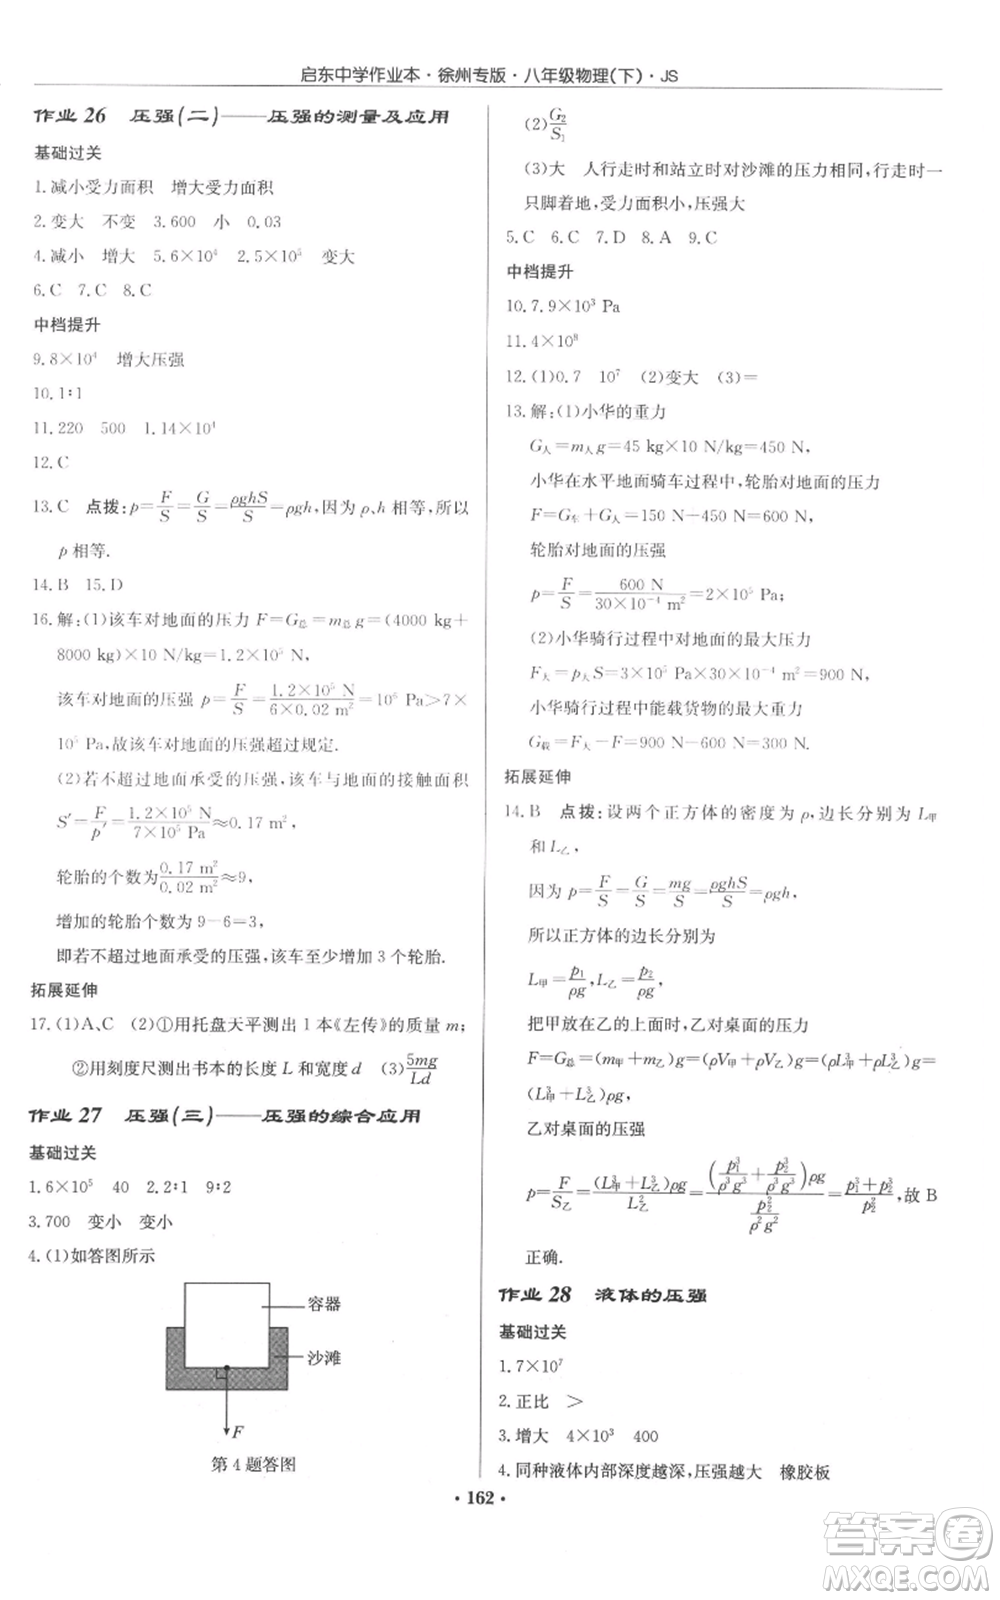 启东中学作业本·徐州专版·八年级物理(下)·JS
作业 26 压强(二)——压强的测量及应用
基础过关
1.减小受力面积 增大受力面积
2.变大 不变 3.600 小 0.03
4.减小 增大 5.6×10⁴ 2.5×10⁵ 变大
6.C 7.C 8.C
中档提升
9.8×10⁴ 增大压强
10.1∶1
11.220 500 1.14×10⁴
12.C
13.C 点拨:p=F/S=G/S=ρghS/S=ρgh,因为 ρ、h 相等,所以
p 相等.
14.B 15.D
16.解:(1)该车对地面的压力 F=G总=m总g=(4000 kg+
8000 kg)×10 N/kg=1.2×10⁵ N,
该车对地面的压强 p=F/S=1.2×10⁵ N/6×0.02 m²=10⁶ Pa>7×
10⁵ Pa,故该车对地面的压强超过规定.
(2)若不超过地面承受的压强,该车与地面的接触面积
S′=F/p′=1.2×10⁵ N/7×10⁵ Pa≈0.17 m²,
轮胎的个数为0.17 m²/0.02 m²≈9,
增加的轮胎个数为 9−6=3,
即若不超过地面承受的压强,该车至少增加 3 个轮胎.
拓展延伸
17.(1)A、C (2)①用托盘天平测出 1 本《左传》的质量 m;
②用刻度尺测出书本的长度 L 和宽度 d (3)5mg/Ld
作业 27 压强(三)——压强的综合应用
基础过关
1.6×10⁵ 40 2.2∶1 9∶2
3.700 变小 变小
4.(1)如答图所示
容器
沙滩
F
第 4 题答图
(2)G₂/S₁
(3)大 人行走时和站立时对沙滩的压力相同,行走时一
只脚着地,受力面积小,压强大
5.C 6.C 7.D 8.A 9.C
中档提升
10.7.9×10³ Pa
11.4×10⁸
12.(1)0.7 10⁷ (2)变大 (3)=
13.解:(1)小华的重力
G人=m人g=45 kg×10 N/kg=450 N,
小华在水平地面骑车过程中,轮胎对地面的压力
F=G车+G人=150 N−450 N=600 N,
轮胎对地面的压强
p=F/S=600 N/30×10⁻⁴ m²=2×10⁵ Pa;
(2)小华骑行过程中对地面的最大压力
F大=p大S=3×10⁵ Pa×30×10⁻⁴ m²=900 N,
小华骑行过程中能载货物的最大重力
G载=F大−F=900 N−600 N=300 N.
拓展延伸
14.B 点拨:设两个正方体的密度为 ρ,边长分别为 L甲
和 L乙,
因为 p=F/S=G/S=mg/S=ρghS/S=ρgh,
所以正方体的边长分别为
L甲=p₁/ρg,L乙=p₂/ρg,
把甲放在乙的上面时,乙对桌面的压力
F=G总=(m甲+m乙)g=(ρV甲+ρV乙)g=(ρL³甲+
ρL³乙)g=(L³甲+L³乙)ρg,
乙对桌面的压强
p=F/S乙=(L³甲+L³乙)ρg/L²乙=(p₁³/ρ³g³+p₂³/ρ³g³)ρg/(p₂²/ρ²g²)=(p₁³+p₂³)/p₂²,故 B
正确.
作业 28 液体的压强
基础过关
1.7×10⁷
2.正比 >
3.增大 4×10³ 400
4.同种液体内部深度越深,压强越大 橡胶板
·162·
答案卷
MXQE.COM